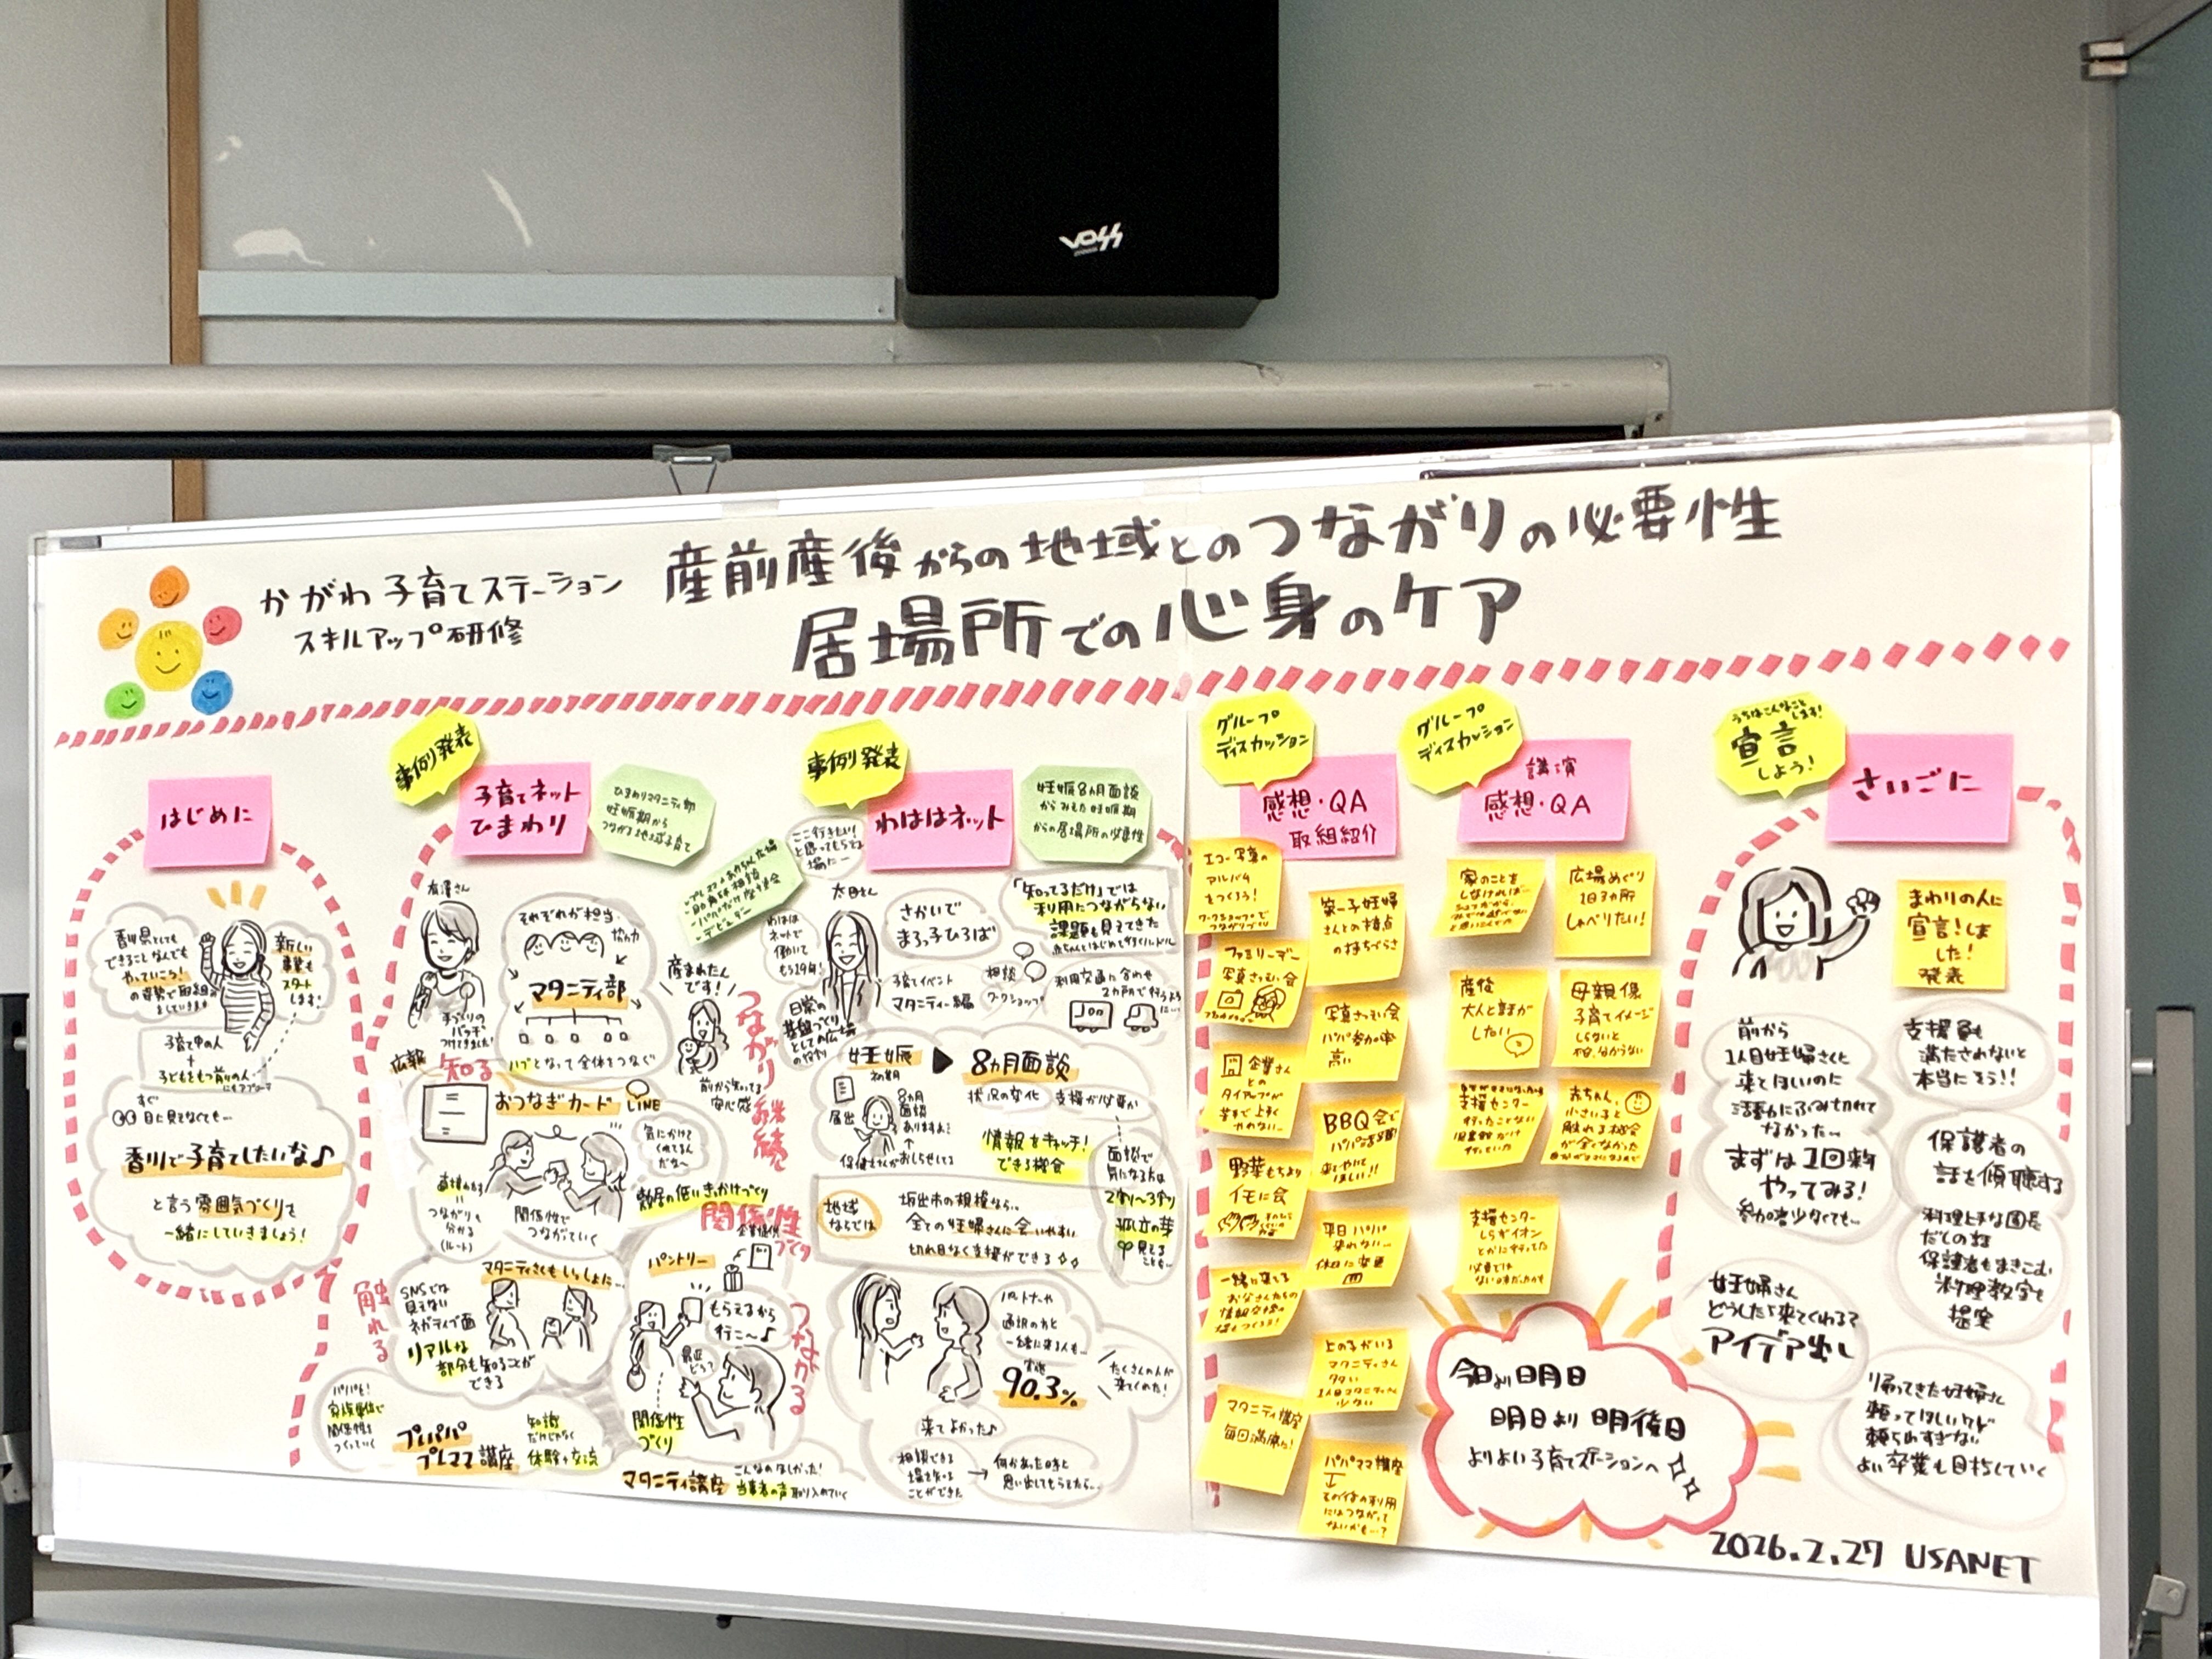 VOSS
かがわ子育てステーション
スキルアップ研修
産前産後からの地域とのつながりの必要性
居場所での心身のケア
はじめに
香川県としても
できることなんでも
やっていこう!
の姿勢で取組み
をしていきます
新しい
事業も
スタート
します!
子育て中の人
+
子どもをもつ前の人
にもアプローチ
すぐ
目に見えなくても…
香川で子育てしたいな♪
と言う雰囲気づくりを
一緒にしていきましょう!
事例発表
子育てネット
ひまわり
ひまわりマタニティ部
妊娠期から
つながる地域子育て
有澤さん
手づくりの
バッチ
つけてきました!
それぞれが担当
協力
マタニティ部
ハブとなって全体をつなぐ
産まれたん
です!
前から知ってる
安心感
つながり
広報
知る
おつなぎカード
LINE
気にかけて
くれてるん
だな〜
関係性で
つながっていく
つながりも
分かる
(ルート)
敷居の低いきっかけづくり
関係性
づくり
触れる
マタニティさんもいっしょに…
SNSでは
見えない
ネガティブ面
リアルな
部分も知ることが
できる
パパも!
家族単位で
関係性を
つくっていく
プレパパ
プレママ講座
知識
だけじゃなく
体験+交流
パントリー
企業提供
もらえるから
行こ〜♪
最近どう?
関係性
づくり
つながる
マタニティ講座
こんなのほしかった!
当事者の声取り入れていく
事例発表
わははネット
妊娠8ヵ月面談
からみえた妊娠期
からの居場所の必要性
・助産師相談
ここ行きたい!
と思ってもらえる
場に…
太田さん
わはは
ネットで
働いて
もう19年!
日常の
基盤づくり
としての広場
の役割
さかいで
まろっ子ひろば
子育てイベント
マタニティー編
相談
ワークショップ
「知ってるだけ」では
利用につながらない
課題も見えてきた
2ヵ所で行うように…
妊娠
初期
▶
8ヵ月面談
届出
8ヵ月
面談
ありますよ!
保健士さんがおしらせしてる
状況の変化
支援が必要か
情報をキャッチ!
できる機会
面談で
気になる方は
2割〜3割
孤立の芽
見える
ことも…
地域
ならでは
坂出市の規模なら…
全ての妊婦さんに会いやすい
切れ目なく支援ができる
パートナーや
通訳の方と
一緒に来る人も…
実施
90.3%
たくさんの人が
来てくれた!
来てよかった♪
相談できる
場を知る
ことができた
→
何かあった時に
思い出してもらえたら…
グループ
ディスカッション
感想・QA
取組紹介
エコー写真の
アルバム
をつくろう!
ワークショップで
つながりづくり
ファミリーデー
写真さつえい会
企業さん
との
タイアップが
苦手で上手く
やれない…
野菜もちより
イモに会
一緒に来てる
お父さんたちの
情報交換の
場をつくろう!
マタニティ講座
毎回満席!
第一子妊婦
さんとの接点
の持ちづらさ
写真さつえい会
パパ参加率
高い
BBQ会で
パパ活躍
平日パパ
来れない…
休日に変更
上の子がいる
マタニティさん
多い
1人目マタニティさん
少ない
パパママ講座
↓
その後の利用
にはつながって
ないかも…?
グループ
ディスカッション
講演
感想・QA
家のことを
しなければ…
広場めぐり
1日3ヵ所
しゃべりたい!
産後
大人と話が
したい
母親像
子育てイメージ
しないと
支援センター
行ったことない
赤ちゃん
小さいころ
触れる機会
が全くなかった
支援センター
しらずイオン
とかに行ってた
今日より明日
明日より明後日
よりよい子育てステーションへ
うちはこんなこと
します!
宣言
しよう!
さいごに
まわりの人に
宣言!しま
した!
発表
前から
1人目妊婦さんに
来てほしいのに
活動にふみ切れて
なかった…
まずは1回科
やってみる!
参加者少なくても…
妊婦さん
どうしたら来てくれる?
アイデア出し
支援員も
満たされないと
本当にそう!!
保護者の
話を傾聴する
料理上手な園長
だしの話
保護者もまきこむ
料理教室を
提案
帰ってきた妊婦さん
頼ってほしいけど
頼らせすぎない
よい卒業も目指していく
2026.2.27 USANET